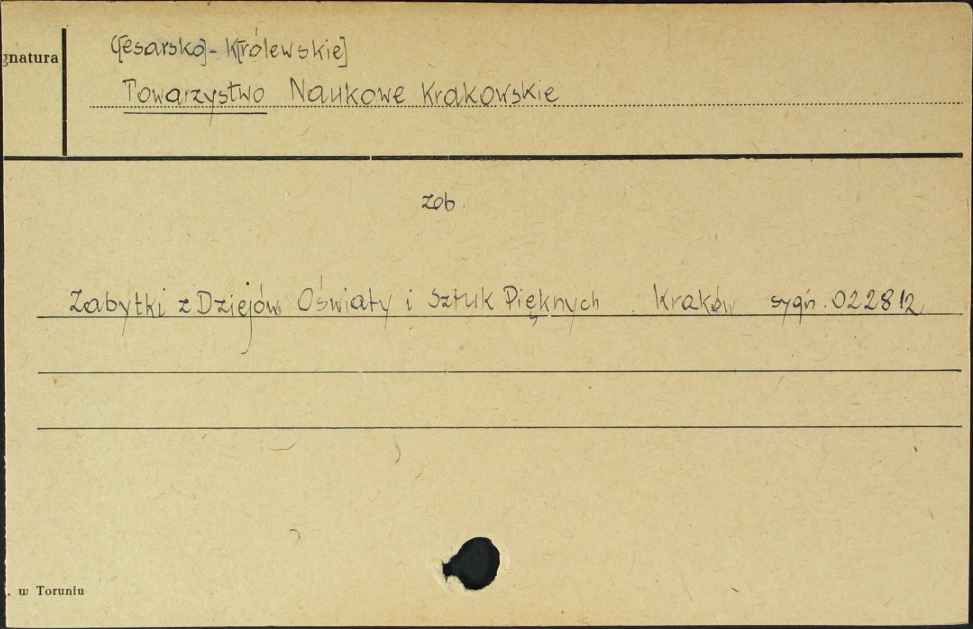 C[esarsko]-K[rólewskie]
gnatura
Towarzystwo Naukowe Krakowskie
zob.
Zabytki z Dziejów Oświaty i Sztuk Pięknych. Kraków sygn. 022812
. w Toruniu